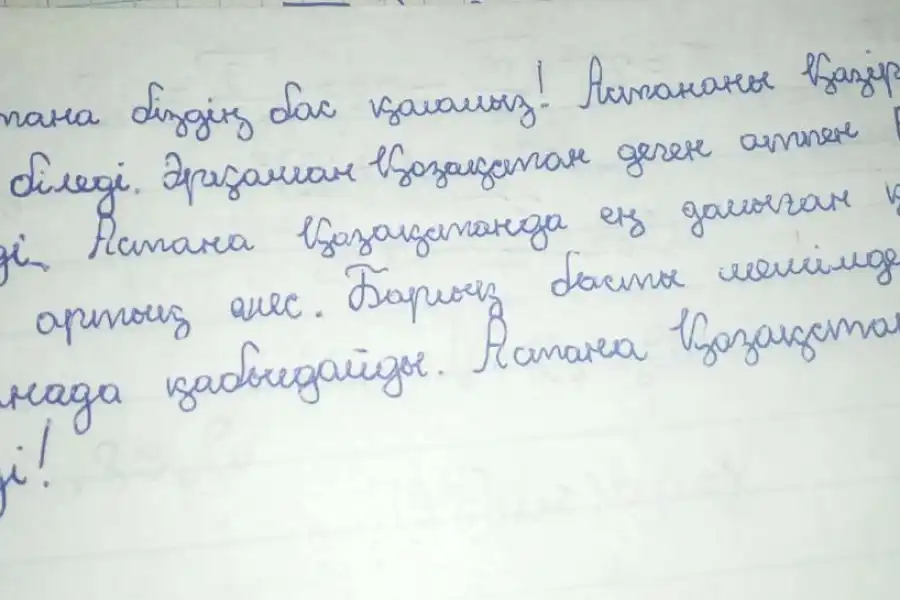 тана біздің бас қаламыз! Астананы Қазір
біледі. Әрқашан Қазақстан деген атпен
ді. Астана Қазақстанда ең дамыған қ
артық емес. Барлық басты шешімде
нада қабылдайды. Астана Қазақстан
ді!